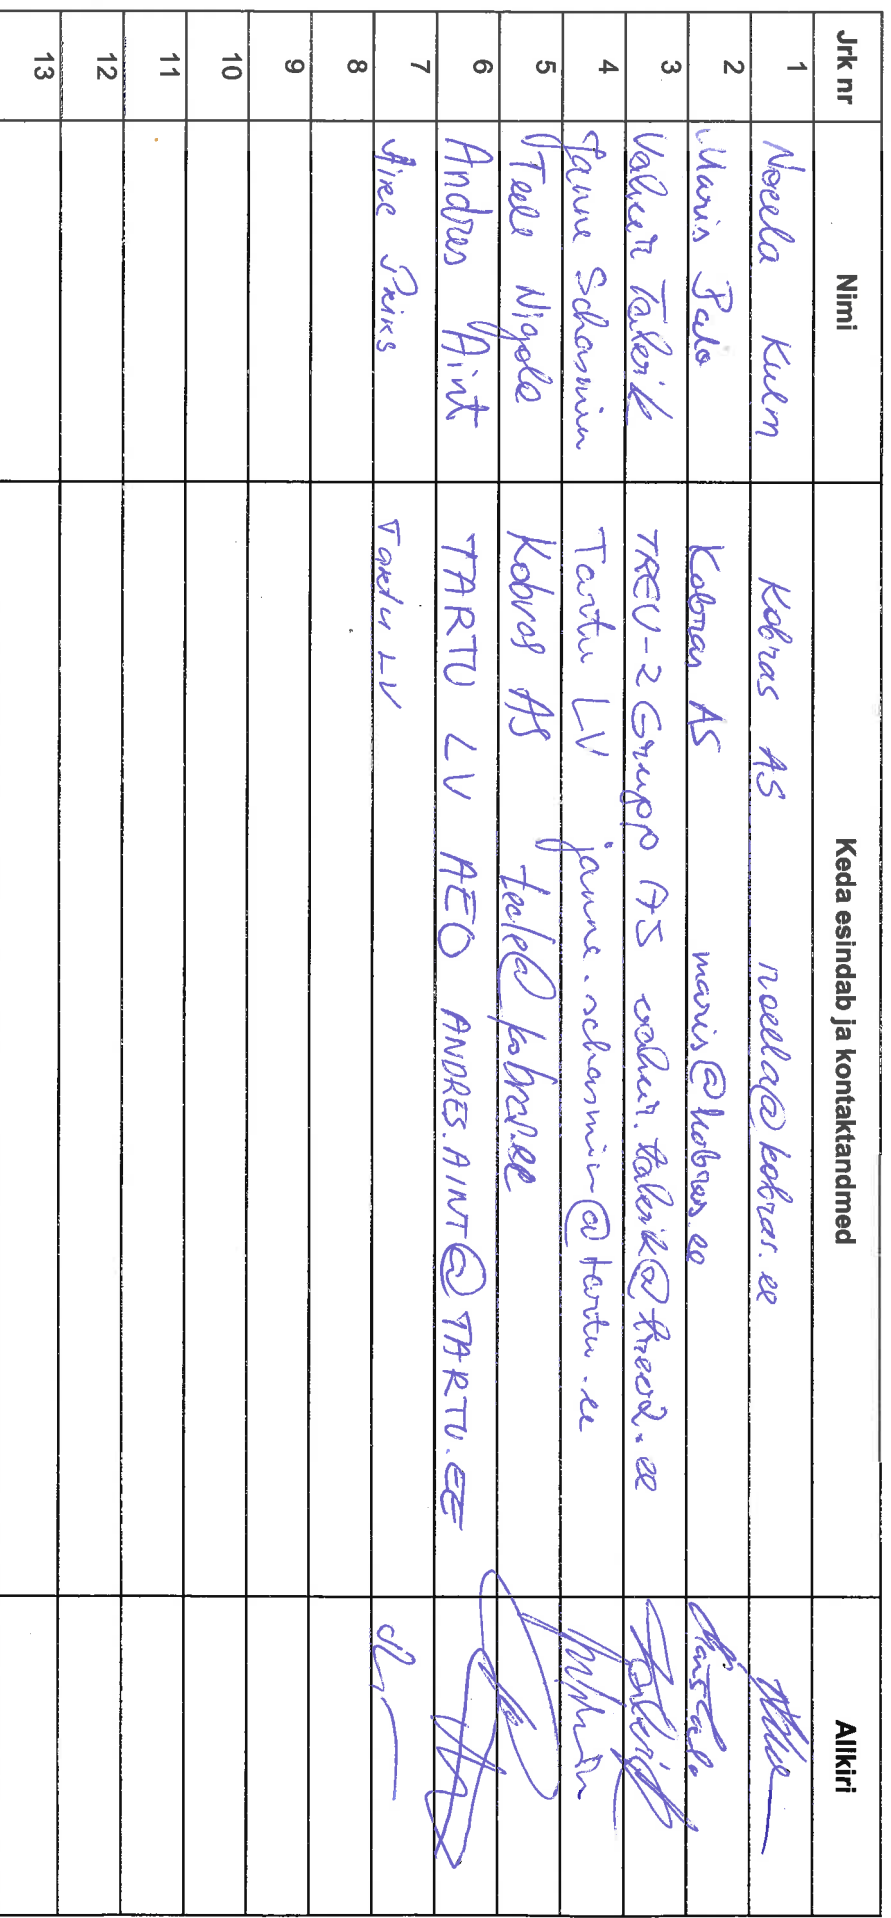 Jrk nr Nimi Keda esindab ja kontaktandmed Allkiri
1 Noeela Kulm Kobras AS noeela@kobras.ee
2 Maris Palo Kobras AS maris@kobras.ee
3 Vahur Talerik TREV-2 Grupp AS vahur.talerik@trev2.ee
4 Janne Schasmin Tartu LV janne.schasmin@tartu.ee
5 Teele Nigola Kobras AS teele@kobras.ee
6 Andres Aint TARTU LV AEO ANDRES.AINT@TARTU.EE
7 Airee Priks Tartu LV
8
9
10
11
12
13